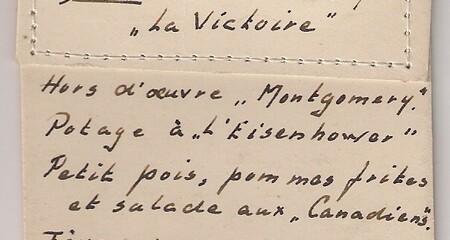 „La Victoire"
Hors d'œuvre „Montgomery."
Potage à „l'Eisenhower"
Petit pois, pommes frites
et salade aux „Canadiens".